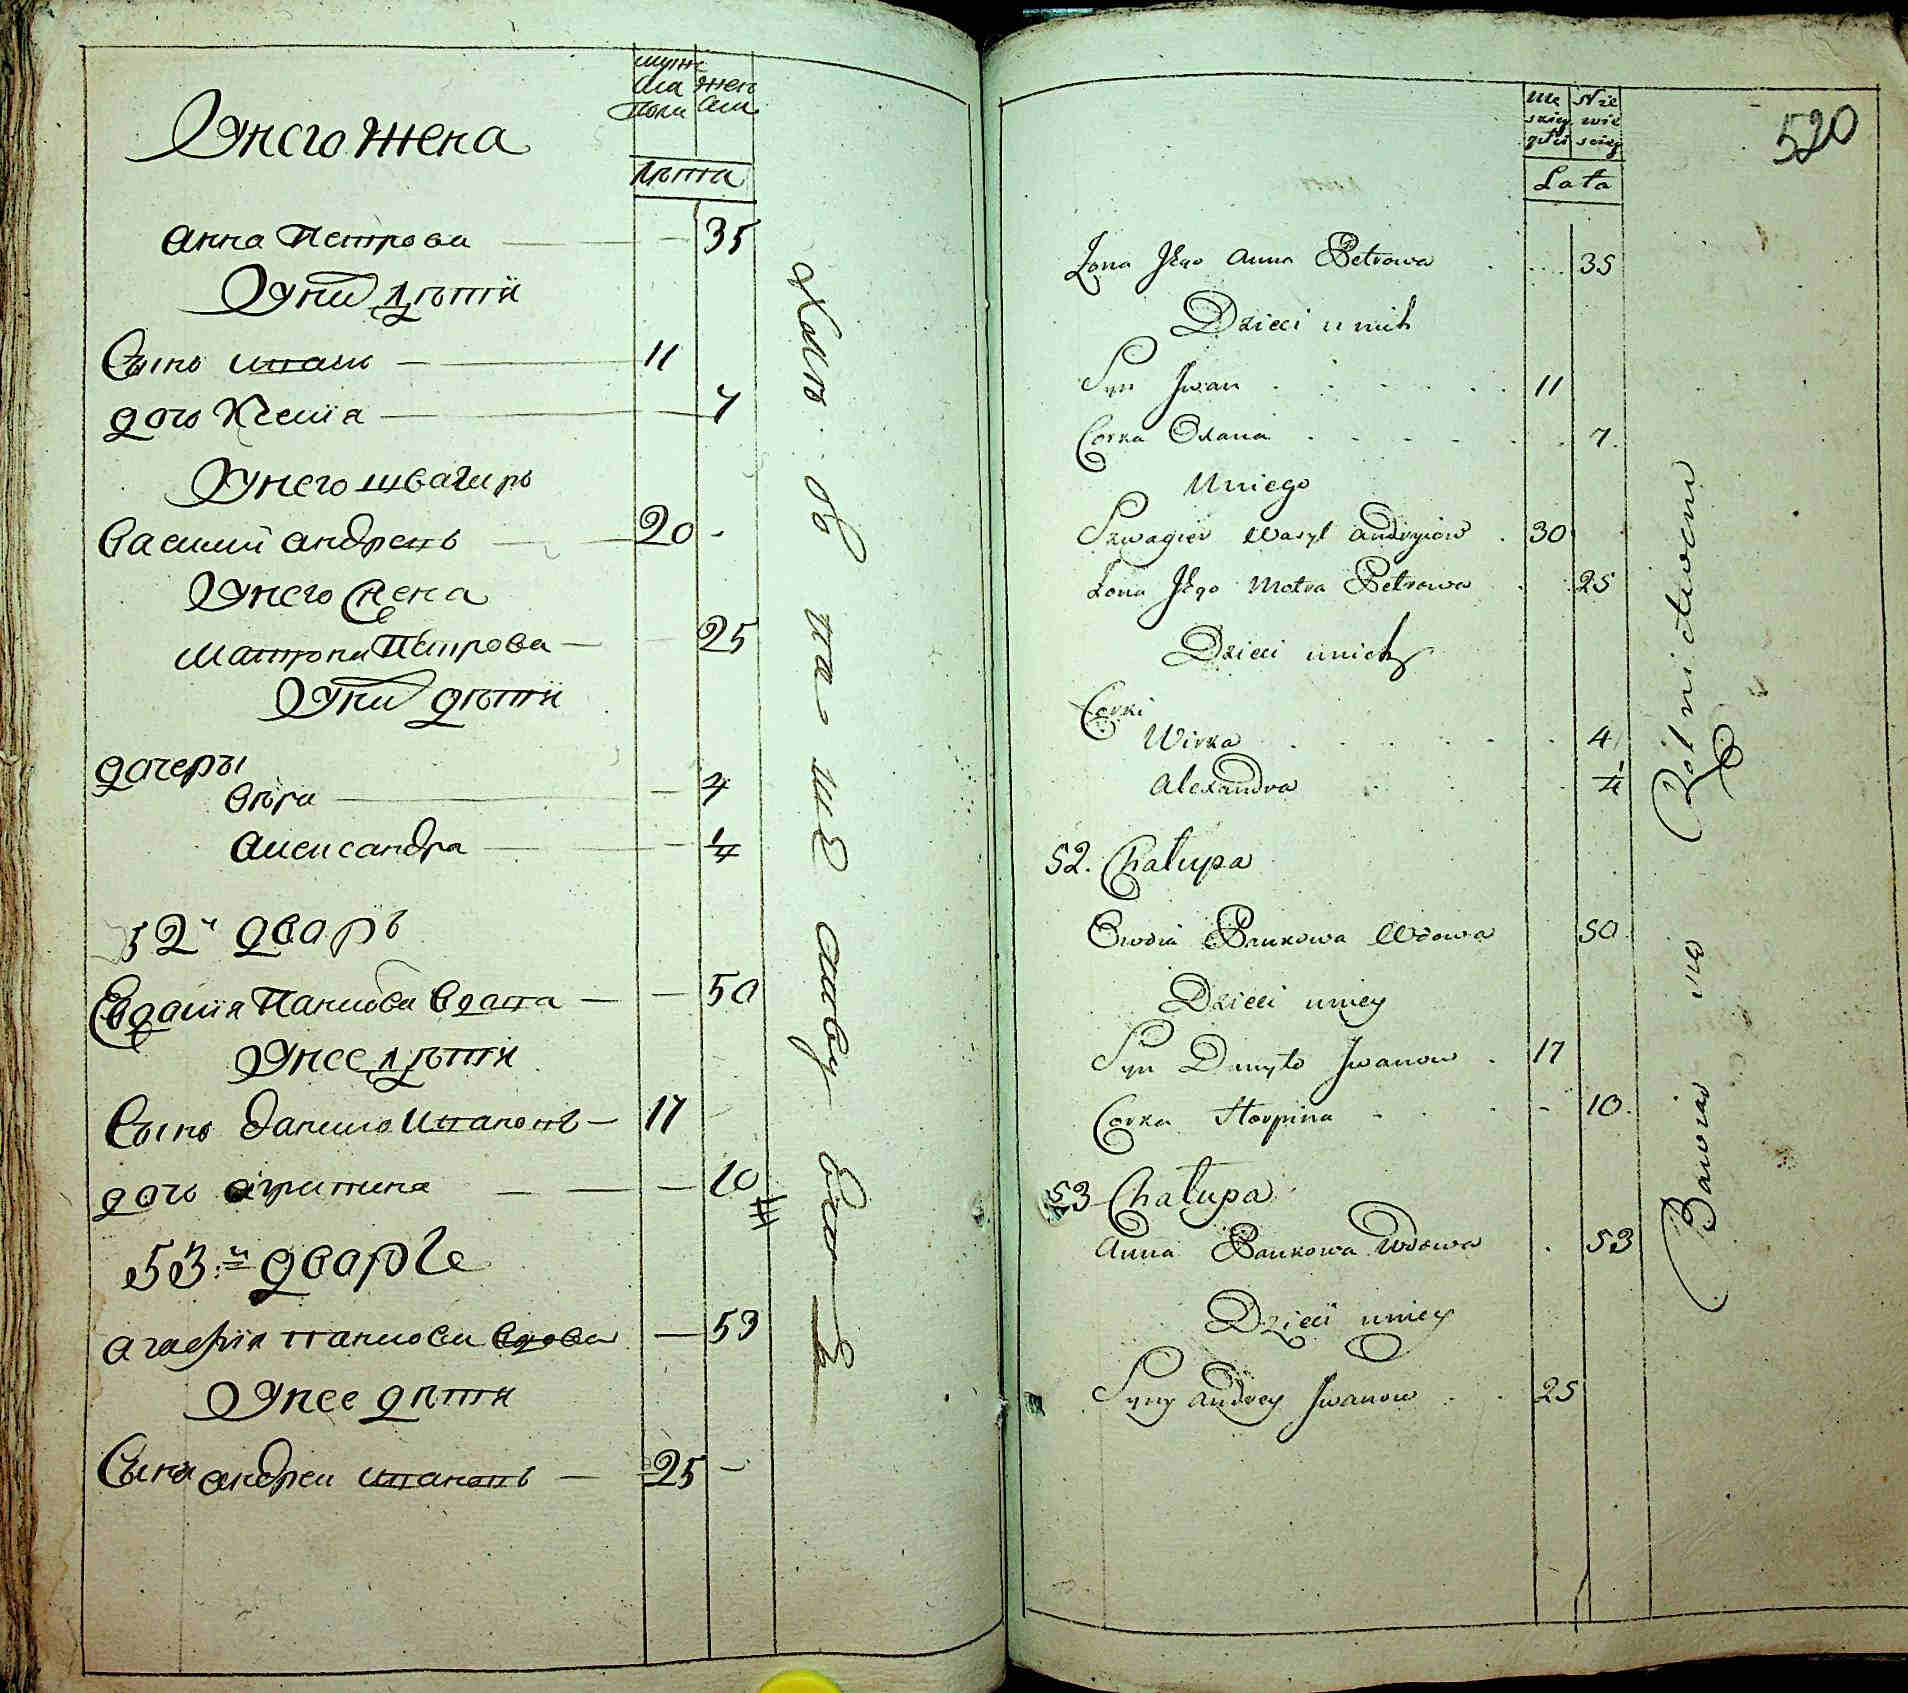 муже
ска жен
пола ска
лѣта
Унего жена
анна Петрова 35
Уни дѣти
Сынъ иванъ 11
дочь Ксенія 7
Унего швагиръ
василий андреевъ 20
Унего жена
Матрона Петрова 25
Уни дѣти
дочеры
вѣра 4
александра 1/4
52й дворъ
Евдокія Панкова вдова 50
Унее дѣти
Сынъ данило Ивановъ 17
дочь агрипина 10
53:й дворъ
агафия панкова вдова 53
Унее дѣти
Сыни андреи ивановъ 25
Me Nie
skiey wie
płci sciey
Lata
520
Żona Jego Anna Petrowa 35
Dzieci u nich
Syn Jwan 11
Corka Oxana 7
U niego
Szwagier Wasyl Andryiow 30
Żona Jego Motra Petrowa 25
Dzieci u nich
Corki
Wirka 4
Alexandra 1/4
52. Chałupa
Owdia Pankowa Wdowa 50
Dzieci u niey
Syn Danyło Jwanow 17
Corka Horpina 10
53 Chałupa
Anna Pankowa Wdowa 53
Dzieci u niey
Syny Andrey Jwanow 25
Bawią się Rolnictwem